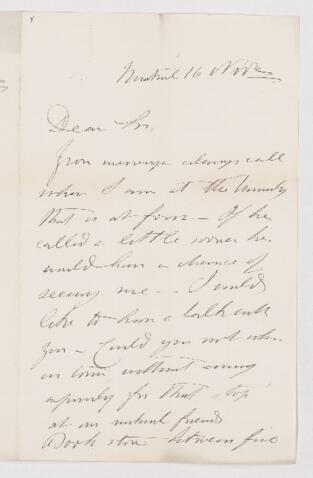 Montreal 16 Nov
Dear Sir,
Your messenger always call
when I am at the
that is at four - If he
called a little sooner he
would have a chance of
seeing me - I would
like to have a talk with
you - Could you not when
in town without coming
expressly for that stop
at our mutual friends
Book store between five